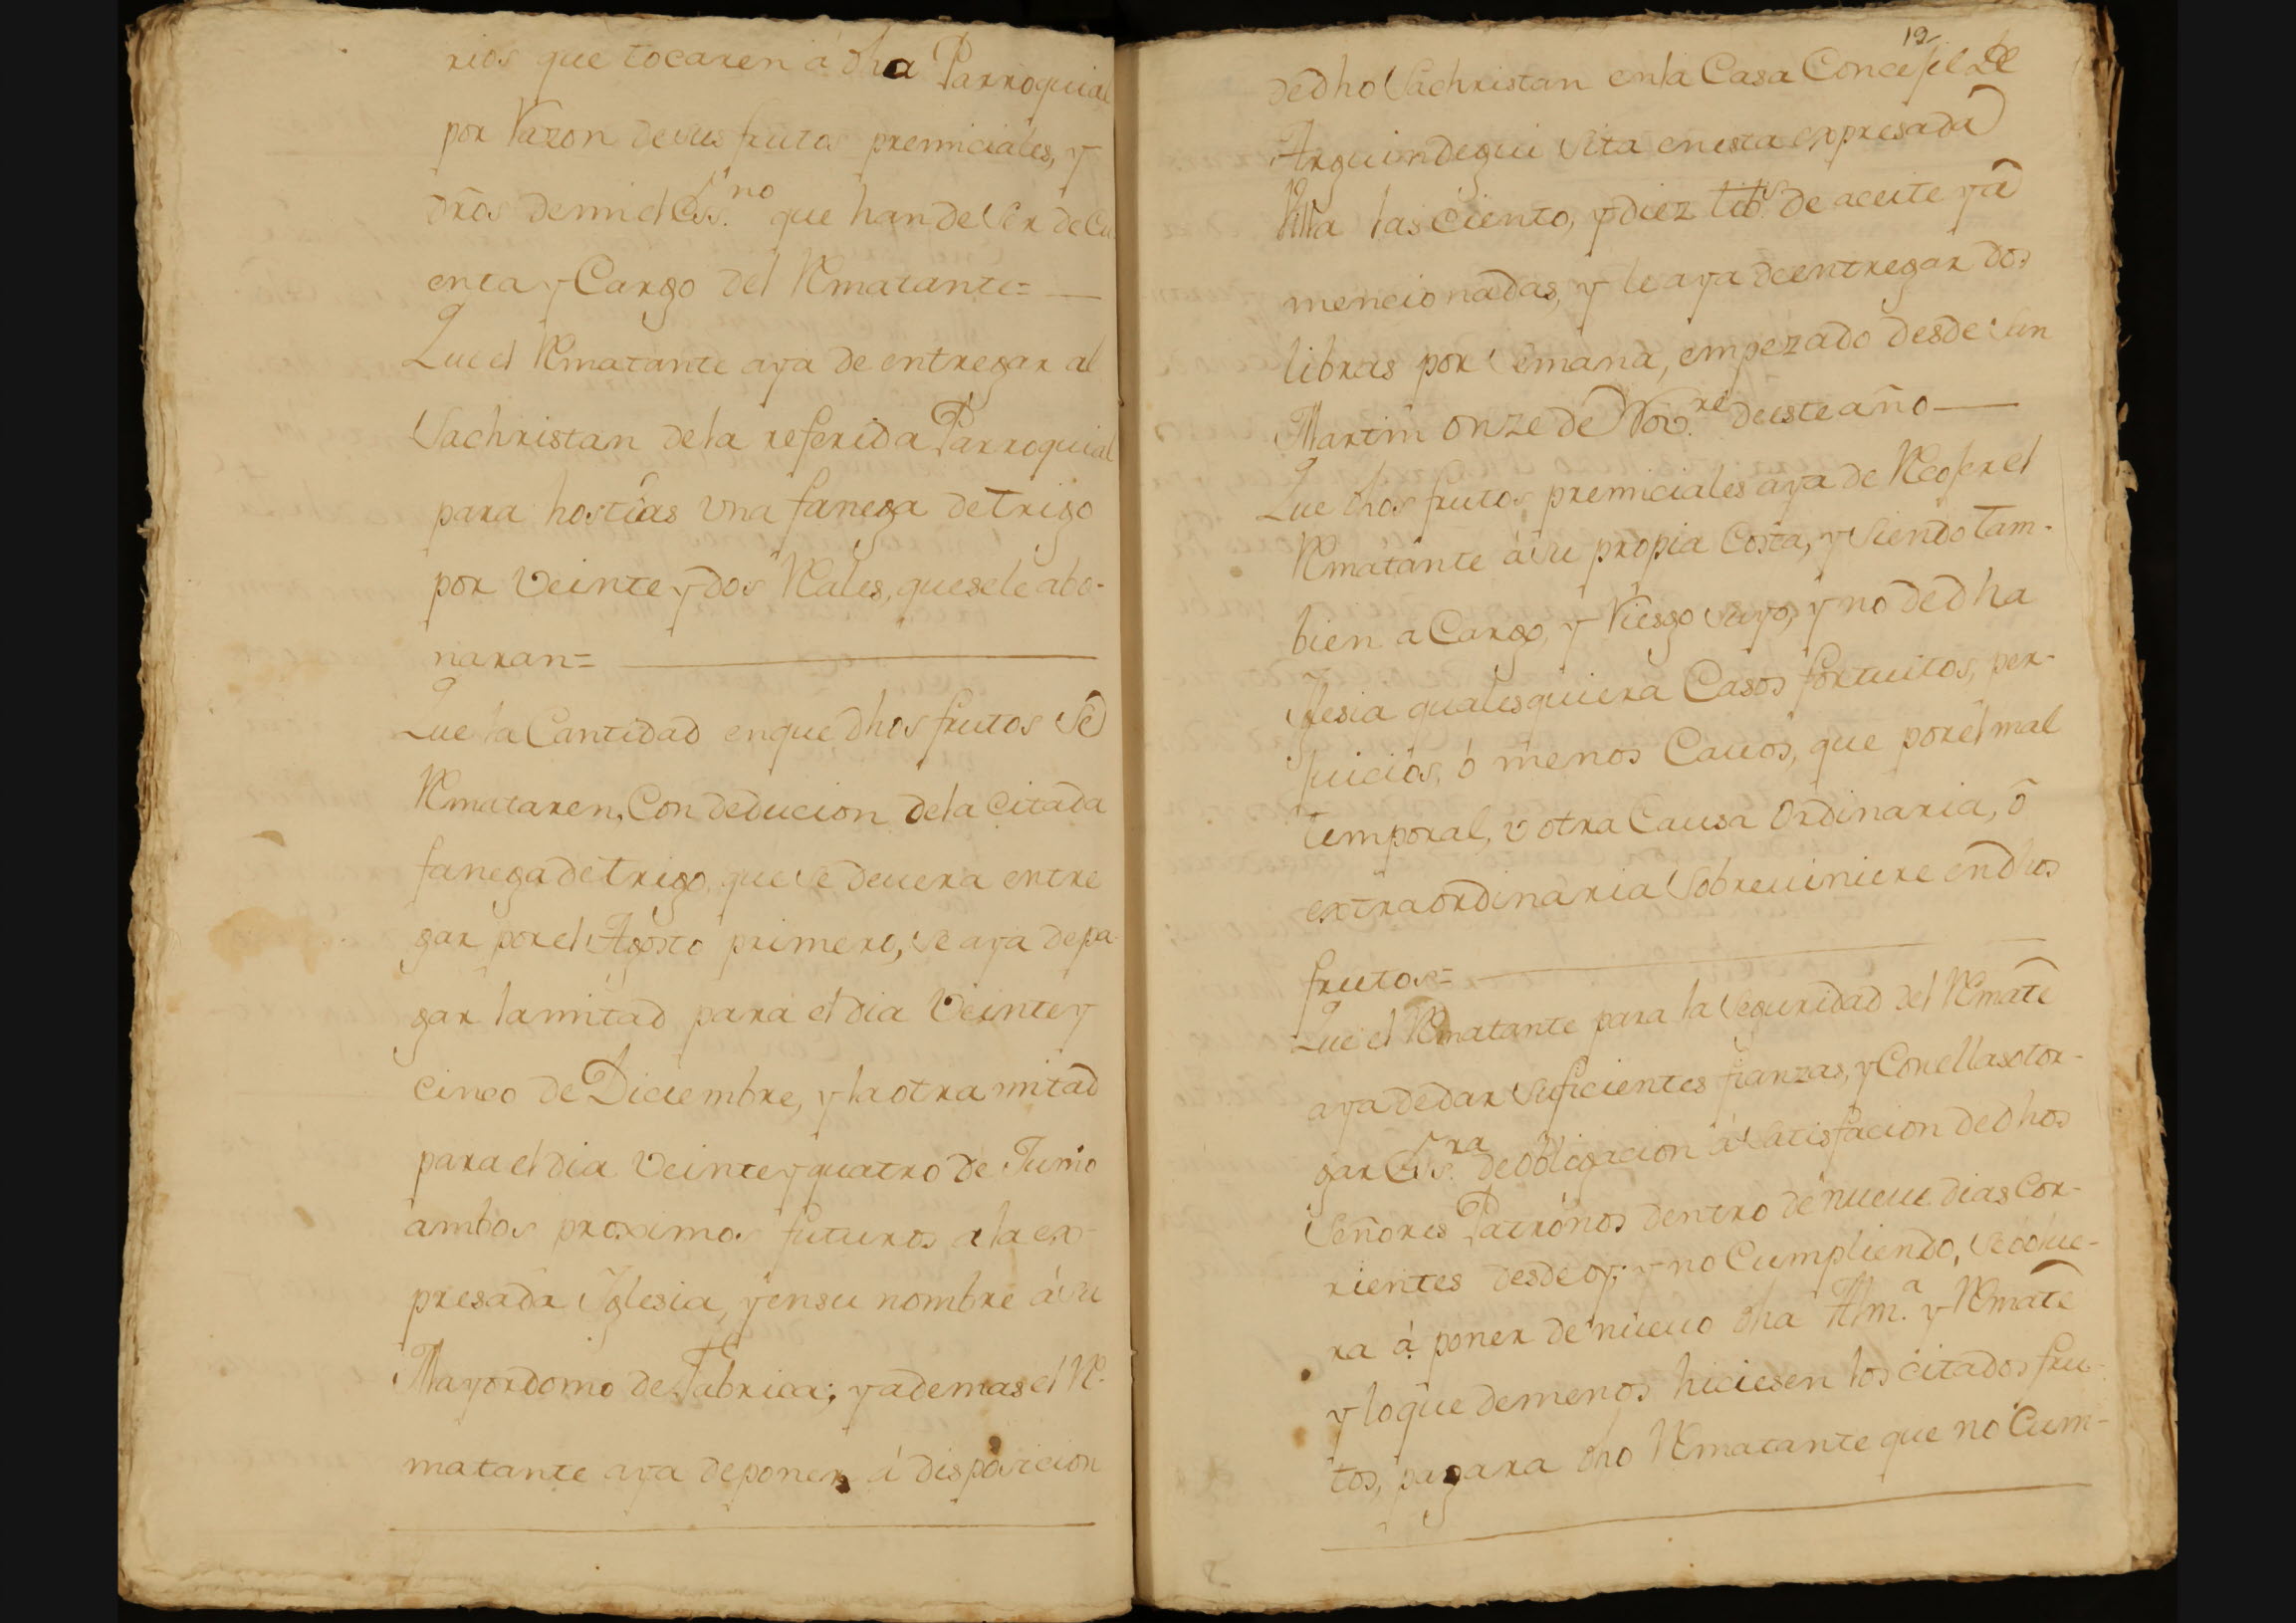 rios que tocaren á dha Parroquial
por Razon de sus frutos premiciales, y
dr̃os de mi el Ess.no que han de ser de Cu
enta y Cargo del Rematante=
Que el Rematante aya de entregar al
Sachristan de la referida Parroquial
para hostias una fanega de trigo
por veinte y dos Reales, que se le abo-
naran=
Que la Cantidad en que dhos frutos se
Remataren, Con deducion de la citada
fanega de trigo, que se deuera entre
gar por el Agosto primero, se aya de pa-
gar la mitad para el dia veinte y
cinco de Diciembre, y la otra mitad
para el dia veinte y quatro de Junio
ambos proximos futuros a la ex-
presada Iglesia, y en su nombre á su
Mayordomo de Fabrica; y ademas el Re-
matante aya de poner á disposicion
19
de dho Sachristan en la Casa Concejil de
Arguindegui sita en esta expresada
Villa las Ciento, y diez lib.s de aceite ya
mencionadas, y le aya de entregar dos
libras por semana, empezado desde san
Martin onze de Nov.re de este año
Que dhos frutos premiciales aya de Recojer el
Rematante á su propia Costa, y siendo tam-
bien a Cargo, y Riesgo suyo, y no de dha
Iglesia qualesquiera Casos fortuitos, per-
juicios, ó menos Cauos, que por el mal
temporal, v otra Causa Ordinaria, ó
extraordinaria Sobreuiniere en dhos
frutos=
Que el Rematante para la seguridad del Remate
aya de dar suficientes fianzas, y Con ellas otor-
gar Ess.ra de Obligacion á satisfacion de dhos
Señores Patronos dentro de nueue dias Cor-
rientes desde oy; y no Cumpliendo, se bolue-
ra á poner de nueuo dha Alm.a y Remate
y lo que de menos hiciesen los citados fru-
tos, pagara dho Rematante que no Cum-